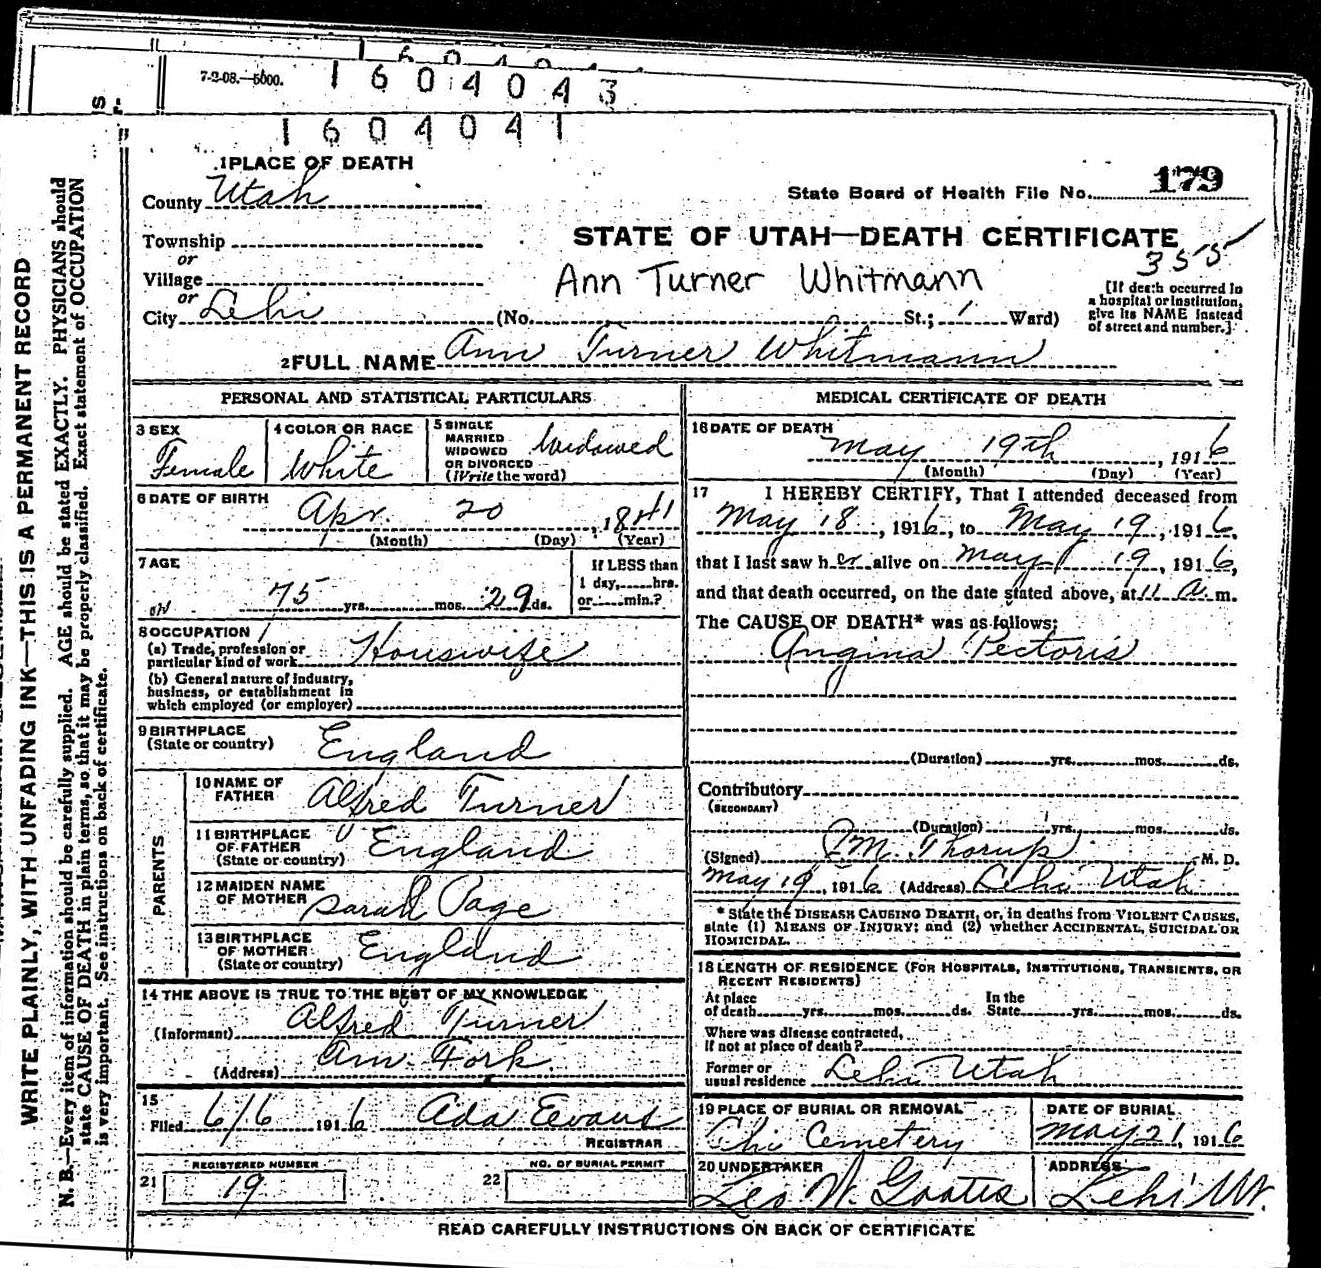 1 6 0 4 0 4
7-2-08.—5000. 1 6 0 4 0 4 3
1 6 0 4 0 4 1
1 PLACE OF DEATH
State Board of Health File No. 179
County Utah
Township
STATE OF UTAH—DEATH CERTIFICATE
355
or
Village
Ann Turner Whitmann
or
City Lehi (No. St.; 1 Ward)
[If death occurred in
a hospital or institution,
give its NAME instead
of street and number.]
2 FULL NAME Ann Turner Whitmann
PERSONAL AND STATISTICAL PARTICULARS
3 SEX
Female
4 COLOR OR RACE
White
5 SINGLE
MARRIED
WIDOWED
OR DIVORCED
(Write the word)
Widowed
6 DATE OF BIRTH
Apr. 20, 1841
(Month) (Day) (Year)
7 AGE
75 yrs. mos. 29 ds.
If LESS than
1 day, hrs.
or min.?
8 OCCUPATION
(a) Trade, profession or
particular kind of work Houswife
(b) General nature of industry,
business, or establishment in
which employed (or employer)
9 BIRTHPLACE
(State or country) England
PARENTS
10 NAME OF
FATHER Alfred Turner
11 BIRTHPLACE
OF FATHER
(State or country) England
12 MAIDEN NAME
OF MOTHER Sarah Page
13 BIRTHPLACE
OF MOTHER
(State or country) England
14 THE ABOVE IS TRUE TO THE BEST OF MY KNOWLEDGE
(Informant) Alfred Turner
(Address) Am. Fork.
15
Filed 6/6 1916 Ada Evans
REGISTRAR
REGISTERED NUMBER
21 19
NO. OF BURIAL PERMIT
22
MEDICAL CERTIFICATE OF DEATH
16 DATE OF DEATH
May 19th, 1916
(Month) (Day) (Year)
17 I HEREBY CERTIFY, That I attended deceased from
May 18, 1916, to May 19, 1916,
that I last saw her alive on May 19, 1916,
and that death occurred, on the date stated above, at 11 A. m.
The CAUSE OF DEATH* was as follows:
Angina Pectoris
(Duration) yrs. mos. ds.
Contributory
(SECONDARY)
(Duration) yrs. mos. ds.
(Signed) Thorup M. D.
May 19, 1916 (Address) Lehi Utah
* State the DISEASE CAUSING DEATH, or, in deaths from VIOLENT CAUSES,
state (1) MEANS OF INJURY; and (2) whether ACCIDENTAL, SUICIDAL OR
HOMICIDAL.
18 LENGTH OF RESIDENCE (FOR HOSPITALS, INSTITUTIONS, TRANSIENTS, OR
RECENT RESIDENTS)
At place
of death yrs. mos. ds.
In the
State yrs. mos. ds.
Where was disease contracted,
if not at place of death?
Former or
usual residence Lehi Utah
19 PLACE OF BURIAL OR REMOVAL
Cemetery
DATE OF BURIAL
May 21, 1916
20 UNDERTAKER
Leo W. Goates
ADDRESS
Lehi Ut.
READ CAREFULLY INSTRUCTIONS ON BACK OF CERTIFICATE
WRITE PLAINLY, WITH UNFADING INK—THIS IS A PERMANENT RECORD
N. B.—Every item of information should be carefully supplied. AGE should be stated EXACTLY. PHYSICIANS should
state CAUSE OF DEATH in plain terms, so that it may be properly classified. Exact statement of OCCUPATION
is very important. See instructions on back of certificate.